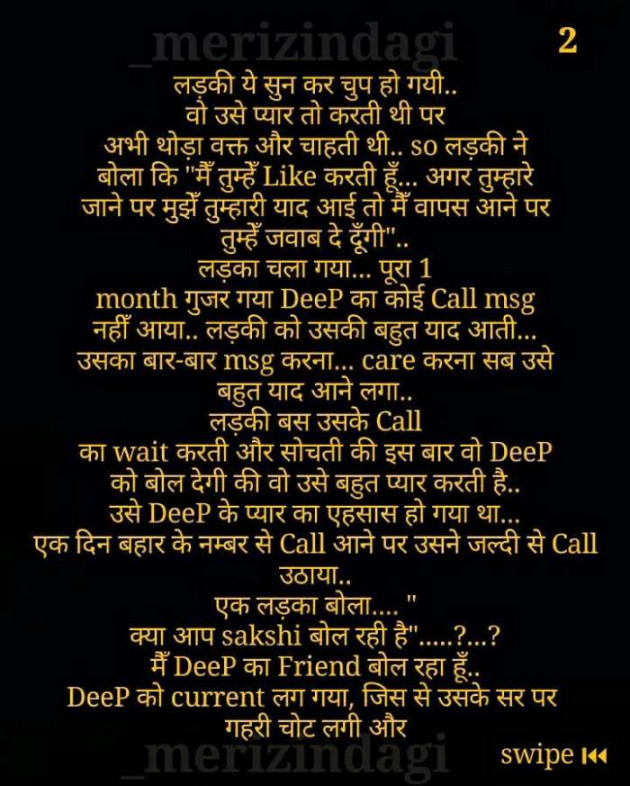 _merizindagi
2
लड़की ये सुन कर चुप हो गयी..
वो उसे प्यार तो करती थी पर
अभी थोड़ा वक्त और चाहती थी.. so लड़की ने
बोला कि "मैँ तुम्हेँ Like करती हूँ... अगर तुम्हारे
जाने पर मुझेँ तुम्हारी याद आई तो मैँ वापस आने पर
तुम्हेँ जवाब दे दूँगी"..
लड़का चला गया... पूरा 1
month गुजर गया DeeP का कोई Call msg
नहीँ आया.. लड़की को उसकी बहुत याद आती...
उसका बार-बार msg करना... care करना सब उसे
बहुत याद आने लगा..
लड़की बस उसके Call
का wait करती और सोचती की इस बार वो DeeP
को बोल देगी की वो उसे बहुत प्यार करती है..
उसे DeeP के प्यार का एहसास हो गया था...
एक दिन बहार के नम्बर से Call आने पर उसने जल्दी से Call
उठाया..
एक लड़का बोला.... "
क्या आप sakshi बोल रही है".....?...?
मैँ DeeP का Friend बोल रहा हूँ..
DeeP को current लग गया, जिस से उसके सर पर
गहरी चोट लगी और
_merizindagi
swipe ⏮